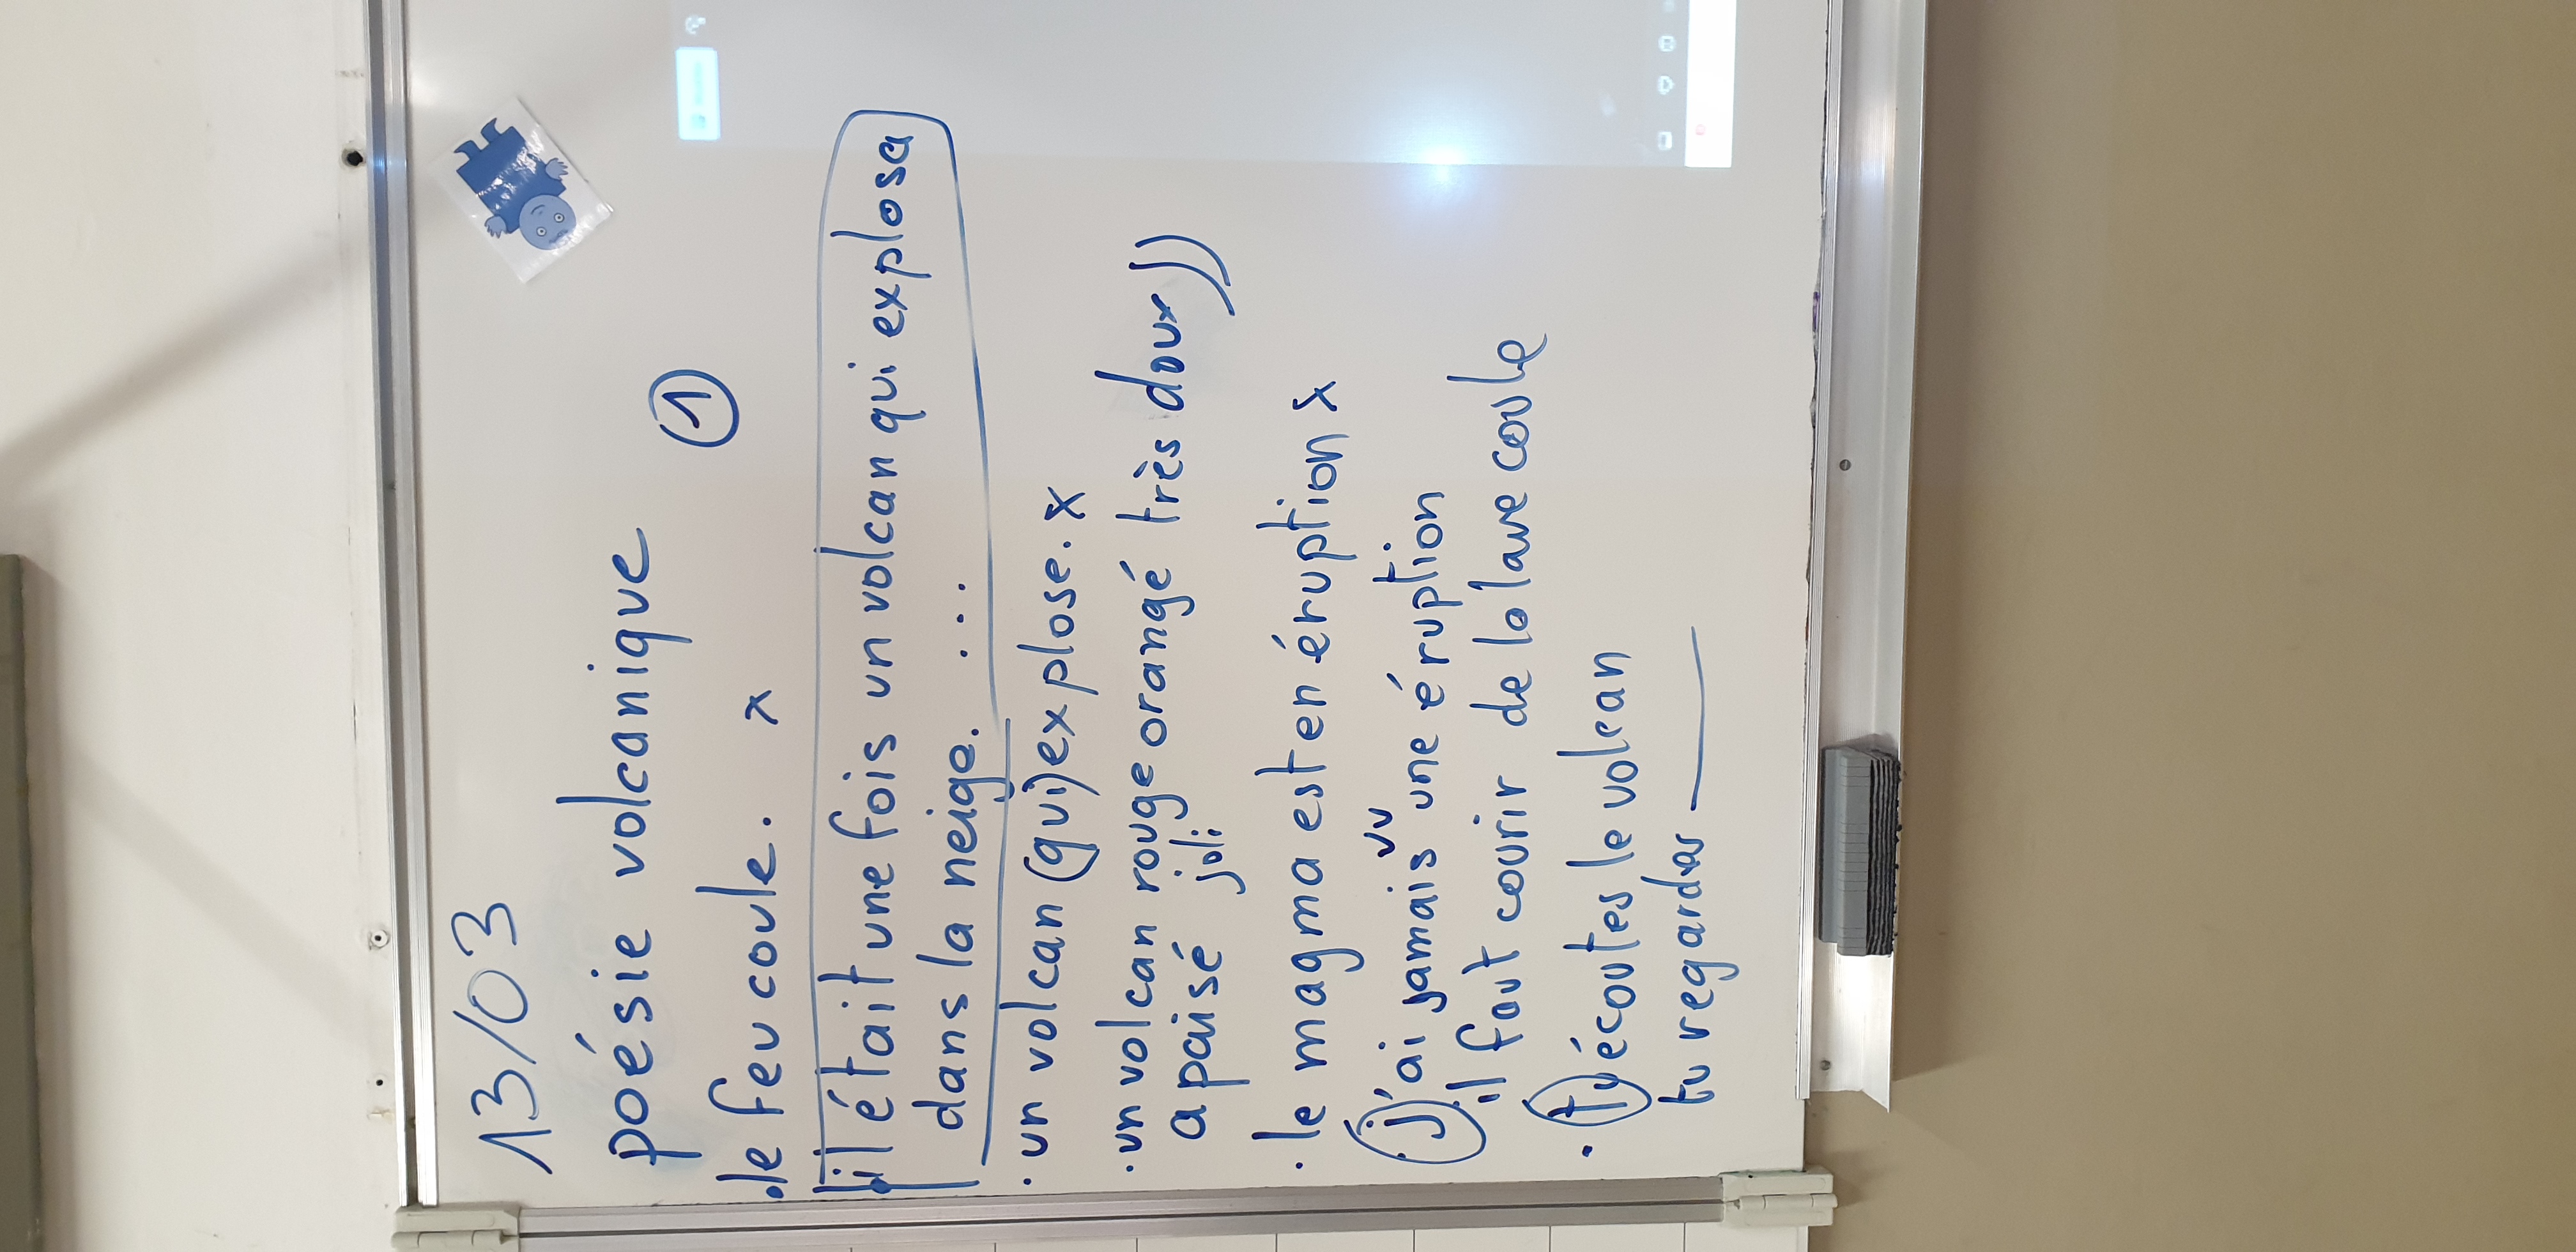 13/03
poésie volcanique
①
.le feu coule. x
il était une fois un volcan qui explosa
dans la neige. ....
. un volcan (qui) explose. x
. un volcan rouge orangé très doux))
apaisé joli
. le magma est en éruption x
j'ai jamais vu une éruption
il faut courir de la lave coule
. tu écoutes le volcan
tu regardes ____